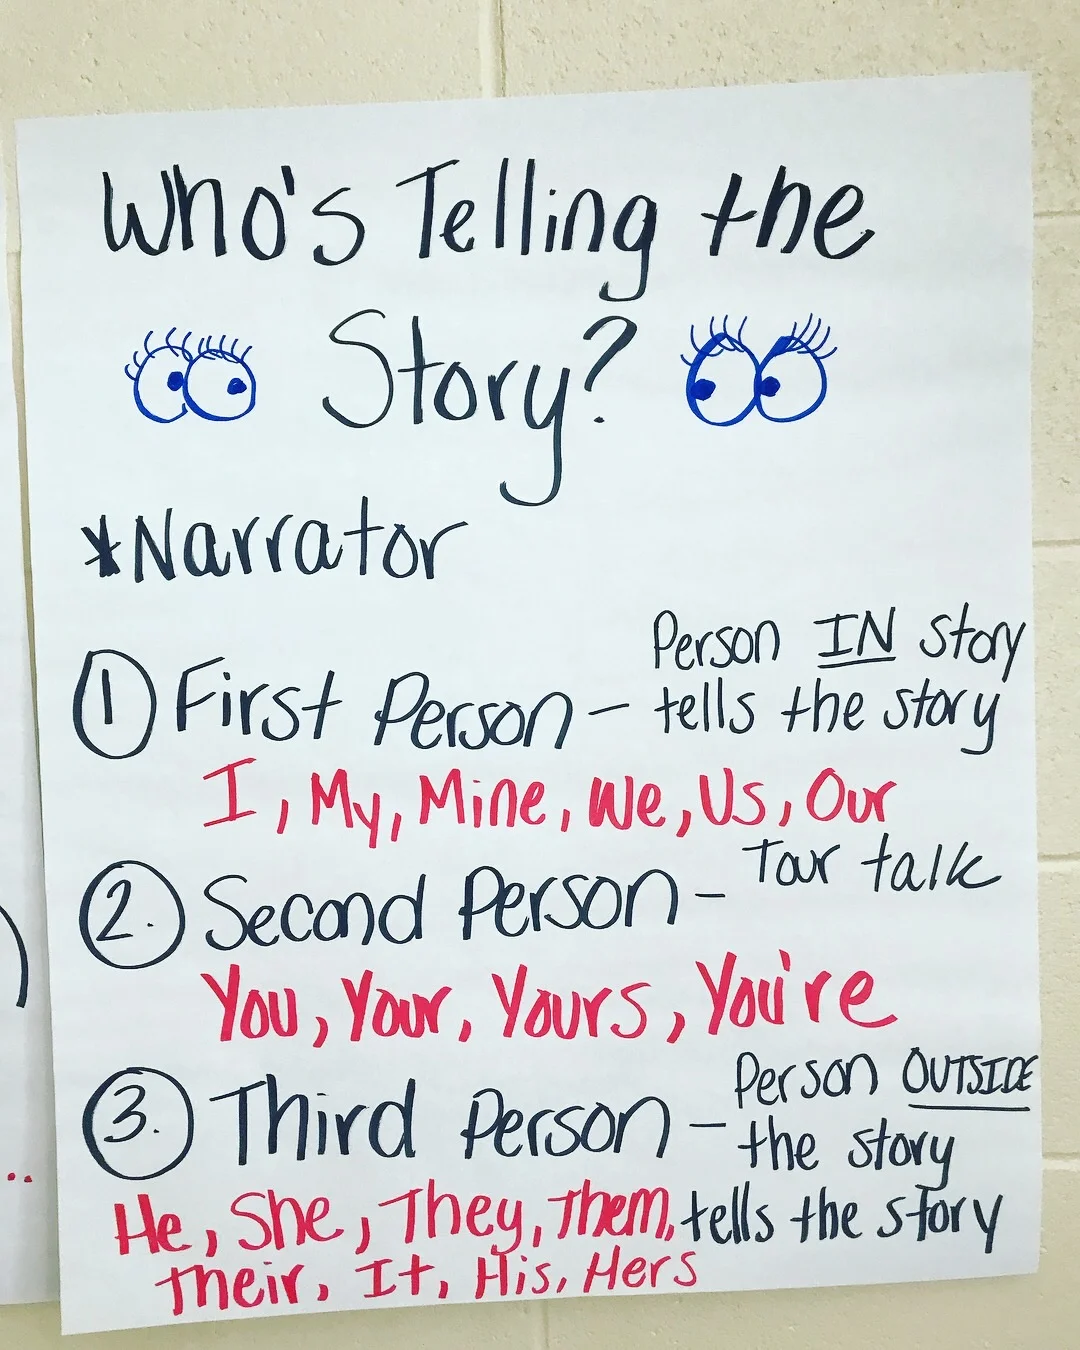 Who's Telling the
Story?
*Narrator
Person IN story
1 First Person - tells the story
I, My, Mine, We, Us, Our
2. Second Person - Tour talk
You, Your, Yours, You're
Person OUTSIDE
3. Third Person - the story
He, She, They, Them, tells the story
Their, It, His, Hers